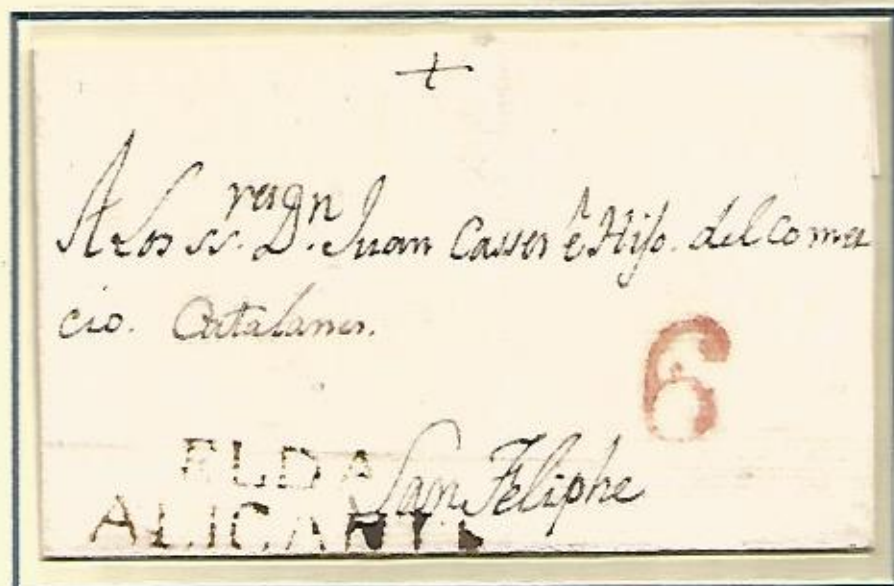 +
A Los SS.res Dn. Juan Casses é Hijo. del comer
cio. Catalanes.
6
ELDA
ALICANTE
San Feliphe